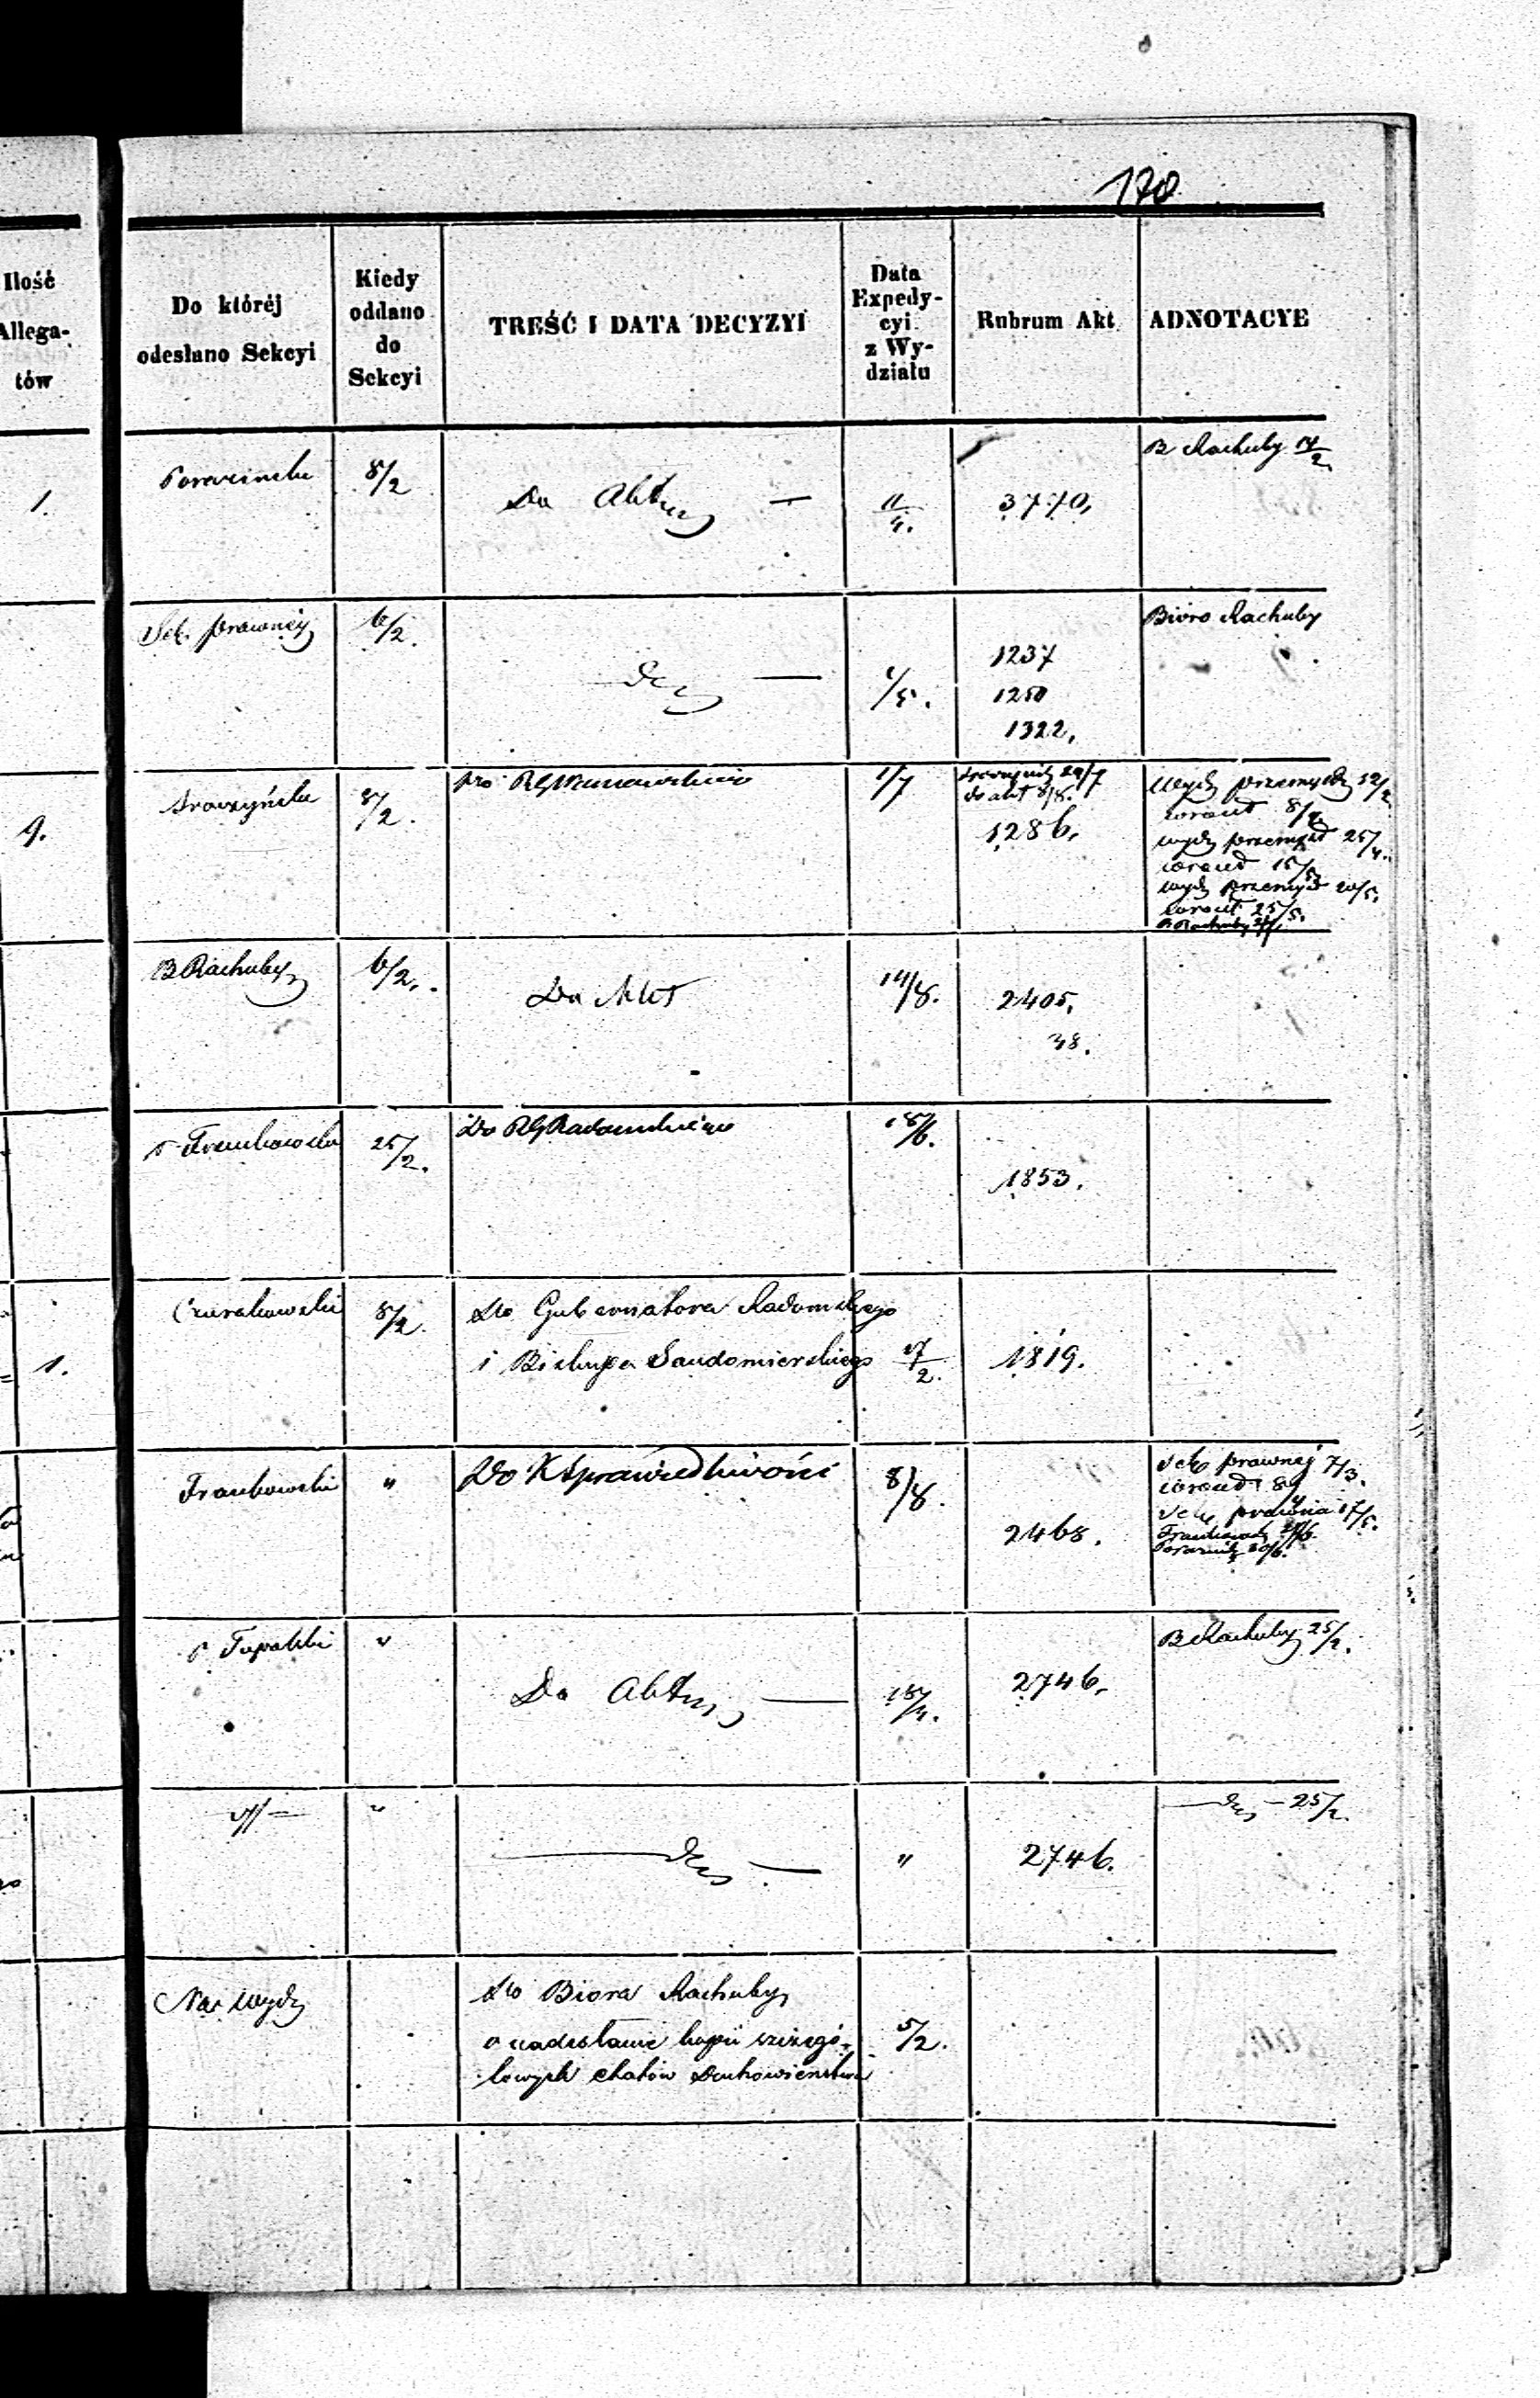 170
Ilość
Allega-
tów
Do któréj
odesłano Sekcyi
Kiedy
oddano
do
Sekcyi
TREŚĆ I DATA DECYZYI
Data
Expedy-
cyi
z Wy-
działu
Rubrum Akt
ADNOTACYE
1.
8/2
Do Aktu —
11/4.
3770,
B Rachuby 14/2
Sek. prawnéj
6/2.
1/5.
1237
1250
1322,
Bióro Rachuby
9.
8/2.
1/7
do akt 8/8.
1286,
Wydz przemysłu 12/2
wrócił 8/4
wydz przemysł 25/4.
wrócił 15/5
wydz przemysł 20/5.
wrócił 25/5.
B Rachuby
B Rachuby
6/2.
Do Akt
14/8.
2405,
38.
25/2.
Do RG Radomskiego
18/6.
1853.
1.
8/2.
Do Gubernatora Radomskiego
i Biskupa Sandomierskiego
17/2.
1819.
Frankowski
"
Do K Sprawiedliwości
8/8.
2468.
Sek prawnej 7/3.
wrócił 8/4
Sek prawna 17/5.
"
Do Aktu —
15/4.
2746,
B Rachuby 25/2.
"
"
2746.
25/2.
Nacz Wydz
Do Biora Rachuby
o nadesłanie kopii szczegó-
łowych etatów Duchowieństwa
5/2.